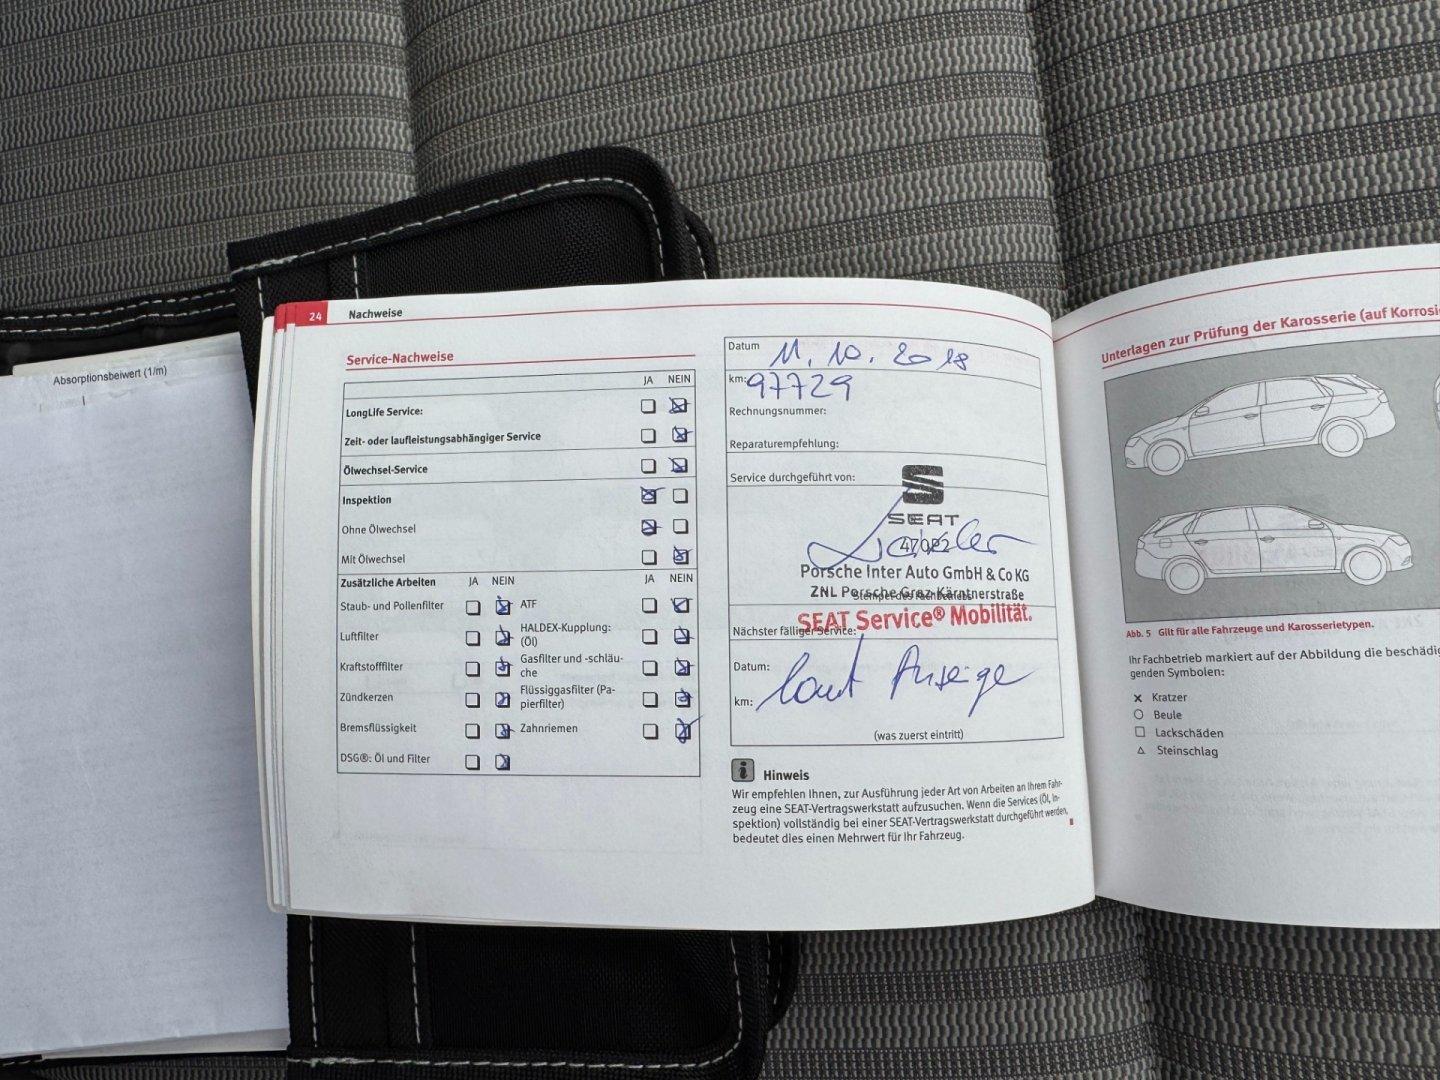 Absorptionsbeiwert (1/m)
24 Nachweise
Service-Nachweise
JA NEIN
LongLife Service:
Zeit- oder laufleistungsabhängiger Service
Ölwechsel-Service
Inspektion
Ohne Ölwechsel
Mit Ölwechsel
Zusätzliche Arbeiten JA NEIN JA NEIN
Staub- und Pollenfilter ATF
Luftfilter HALDEX-Kupplung:
(Öl)
Kraftstofffilter Gasfilter und -schläu-
che
Zündkerzen Flüssiggasfilter (Pa-
pierfilter)
Bremsflüssigkeit Zahnriemen
DSG®: Öl und Filter
Datum 11. 10. 2018
km: 97729
Rechnungsnummer:
Reparaturempfehlung:
Service durchgeführt von:
SEAT
Porsche Inter Auto GmbH & Co KG
ZNL Porsche Graz-Kärntnerstraße
Stempel des Fachbetriebs
SEAT Service® Mobilität.
Nächster fälliger Service:
Datum: laut Anzeige
km:
(was zuerst eintritt)
i Hinweis
Wir empfehlen Ihnen, zur Ausführung jeder Art von Arbeiten an Ihrem Fahr-
zeug eine SEAT-Vertragswerkstatt aufzusuchen. Wenn die Services (Öl, In-
spektion) vollständig bei einer SEAT-Vertragswerkstatt durchgeführt werden,
bedeutet dies einen Mehrwert für Ihr Fahrzeug.
Unterlagen zur Prüfung der Karosserie (auf Korrosi
Abb. 5 Gilt für alle Fahrzeuge und Karosserietypen.
Ihr Fachbetrieb markiert auf der Abbildung die beschädig
genden Symbolen:
Kratzer
Beule
Lackschäden
Steinschlag